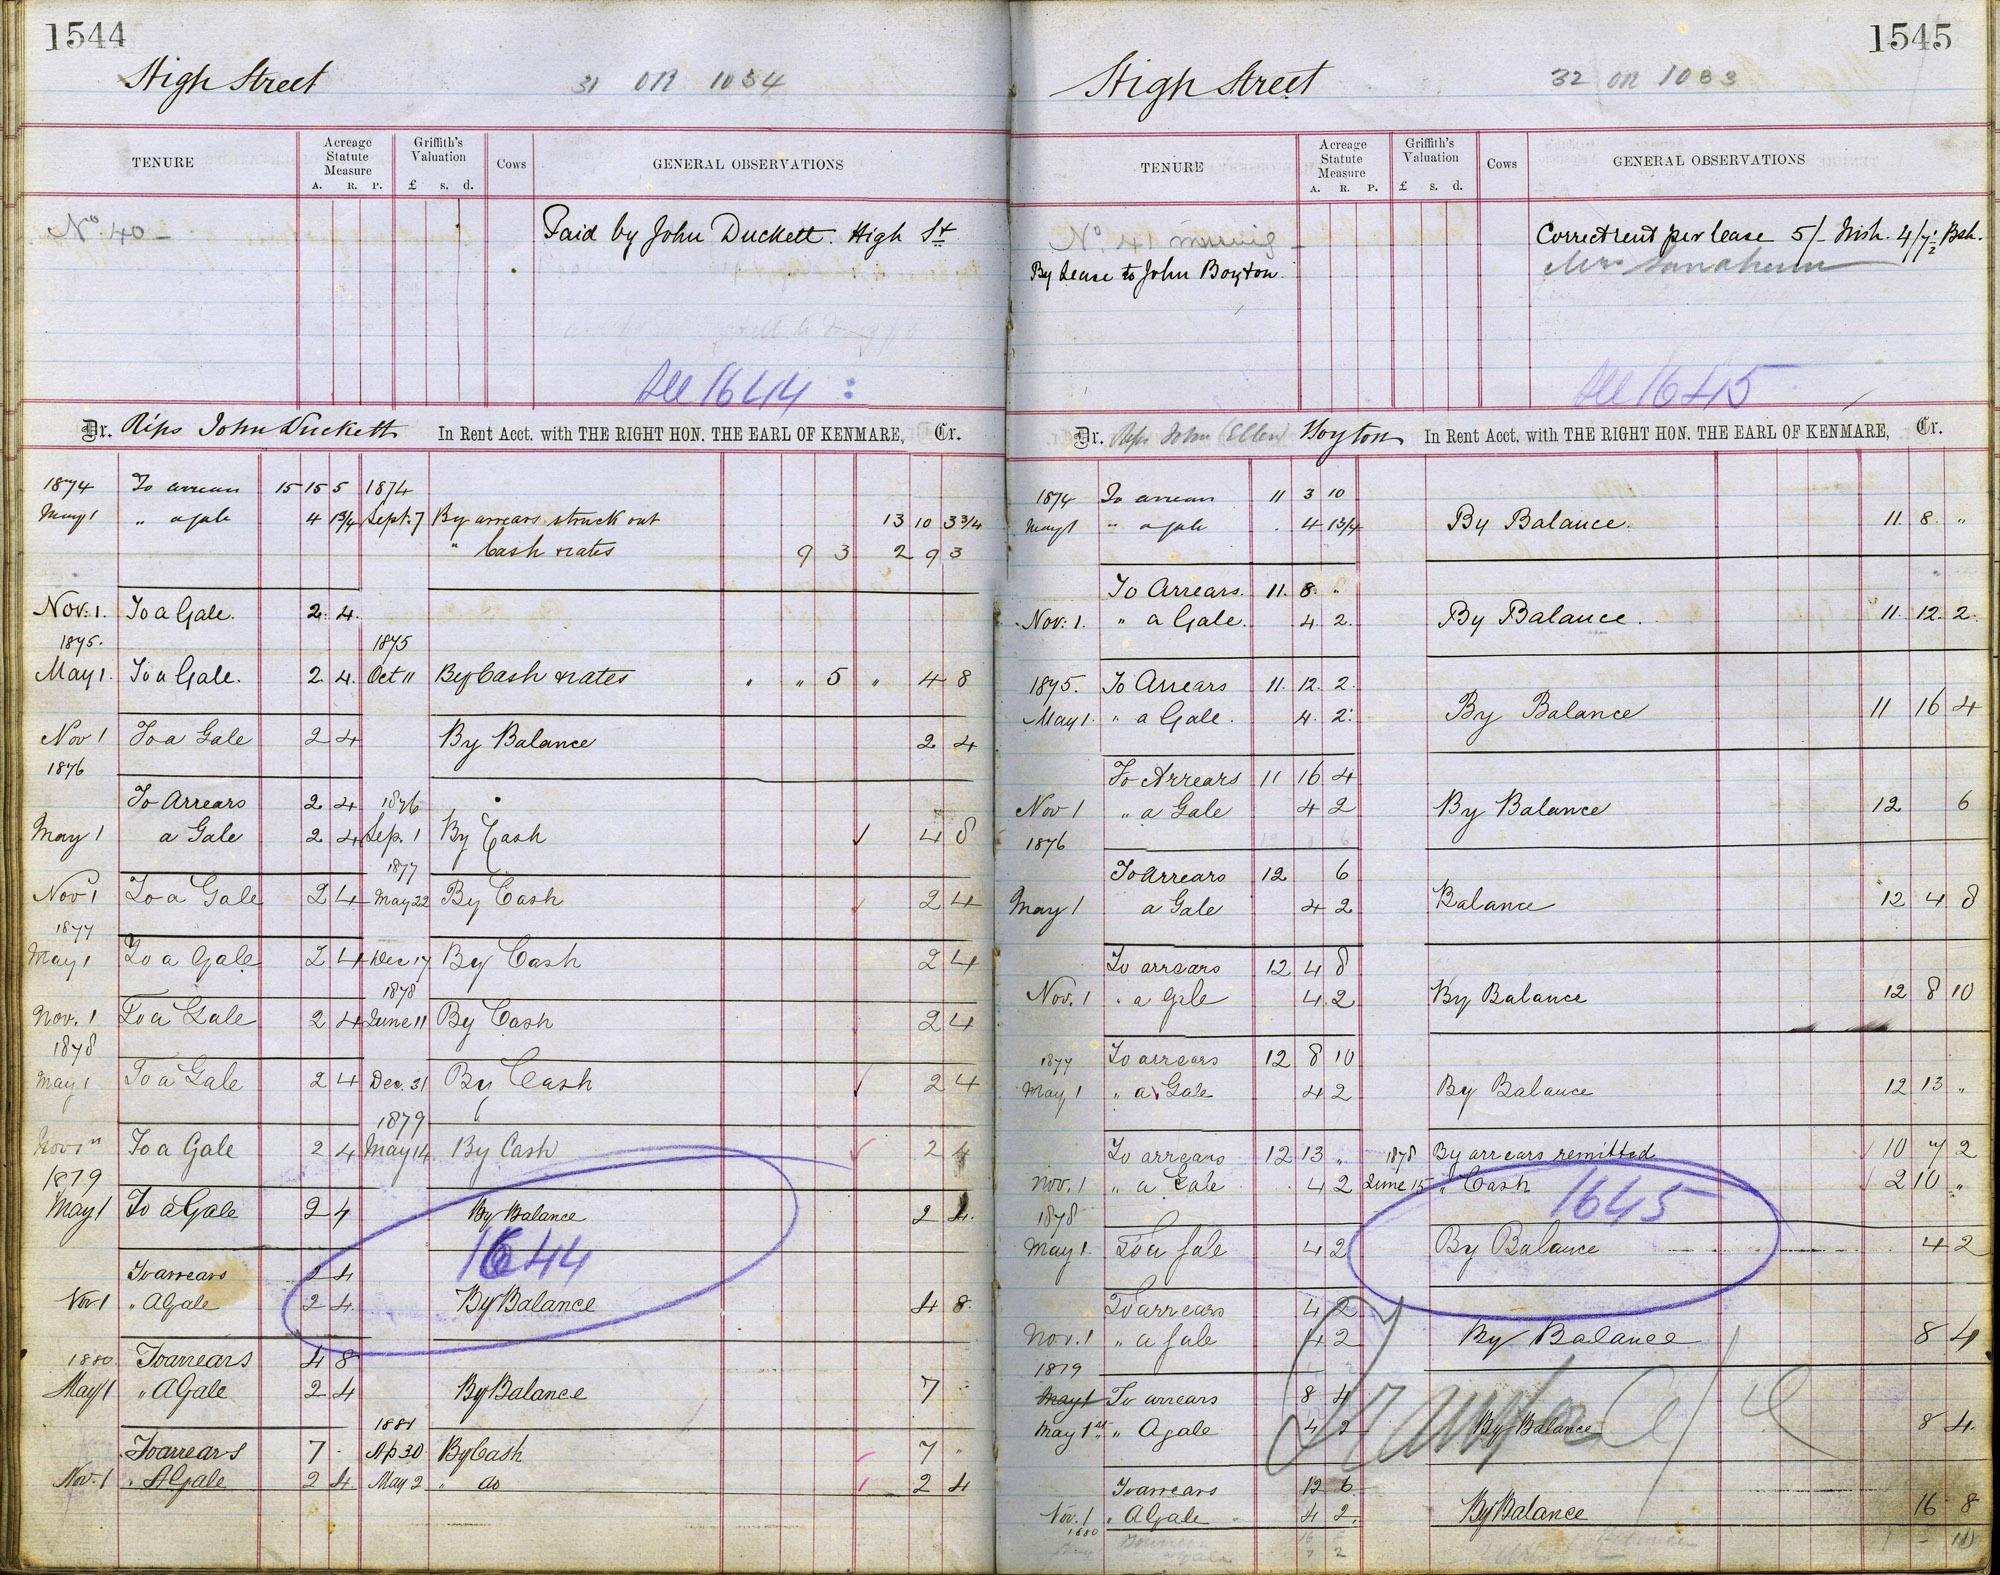 1544
High Street 31 OR 1034
TENURE Acreage Statute Measure A. R. P. Griffith's Valuation £ s. d. Cows GENERAL OBSERVATIONS
No. 40 - Paid by John Duckett. High St.
See 1644 :
Dr. Reps John Duckett In Rent Acct. with THE RIGHT HON. THE EARL OF KENMARE, Cr.
1874 To arrears 15 15 5 1874
May 1 " a gale 4 1 3/4 Sept. 7 By arrears struck out 13 10 3 3/4
" Cash & rates 9 3 2 9 3
Nov: 1. To a Gale. 2. 4.
1875. 1875
May 1. To a Gale. 2 4. Oct 11 By Cash & rates " " 5 " 4 8
Nov 1 To a Gale 2 4 By Balance 2 4
1876
To Arrears 2 4 1876
May 1 a Gale 2 4 Sep. 1 By Cash 4 8
1877
Nov 1 To a Gale 2 4 May 22 By Cash 2 4
1877
May 1 To a Gale 2 4 Dec 17 By Cash 2 4
1878
Nov. 1 To a Gale 2 4 June 11 By Cash 2 4
1878
May 1 To a Gale 2 4 Dec. 31 By Cash 2 4
1879
Nov 1 To a Gale 2 4 May 14 By Cash 2 4
1879
May 1 To a Gale 2 4 By Balance 2 4.
1644
To arrears 2 4
Nov 1 " A Gale 2 4. By Balance 4 8
1880. To arrears 4 8
May 1 " A Gale 2 4 By Balance 7
1881
To arrears 7 Ap 30 By Cash 7 "
Nov. 1 " A Gale 2 4. May 2 " do 2 4
1545
High Street 32 OR 1033
TENURE Acreage Statute Measure A. R. P. Griffith's Valuation £ s. d. Cows GENERAL OBSERVATIONS
No 41 Correct rent per lease 5/- Irish. 4/7 1/2 Bsh.
By Lease to John Boyton. Mrs
See 1645
Dr. Reps John (Ellen) Boyton In Rent Acct. with THE RIGHT HON. THE EARL OF KENMARE, Cr.
1874 To arrears 11 3 10
May 1 " a gale . 4 1 3/4 By Balance. 11. 8. "
To Arrears. 11. 8. "
Nov: 1. " a Gale. 4. 2. By Balance. 11. 12. 2.
1875. To Arrears 11. 12. 2.
May 1. " a Gale. 4. 2. By Balance 11 16 4
To Arrears 11 16 4
Nov 1 " a Gale 4 2 By Balance 12 6
1876
To arrears 12 6
May 1 a Gale 4 2 Balance 12 4 8
To arrears 12 4 8
Nov. 1 " a Gale 4. 2 By Balance 12 8 10
1877 To arrears 12 8 10
May 1 " a Gale 4 2 By Balance 12 13 "
To arrears 12 13 " 1878 By arrears remitted 10 7 2
Nov. 1 " a Gale 4 2 June 15 " Cash 2 10 "
1645
1878
May 1. To a Gale 4 2 By Balance 4 2
To arrears 4 2
Nov. 1 " a Gale 4 2 By Balance 8 4
1879
May 1 To arrears 8 4
May 1st " A gale 4 2 By Balance 8 4.
To arrears 12 6
Nov. 1 " A Gale 4 2. By Balance 16 8
1880